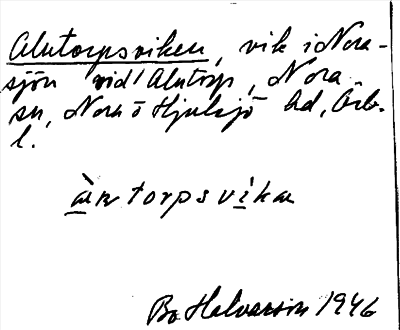 Alntorpsviken, vik i Nora-
sjön vid Alntorp, Nora
sn, Nora o Hjulsjö hd, Örb.
l.
àn torpsvíka
Bo Halvarson 1946